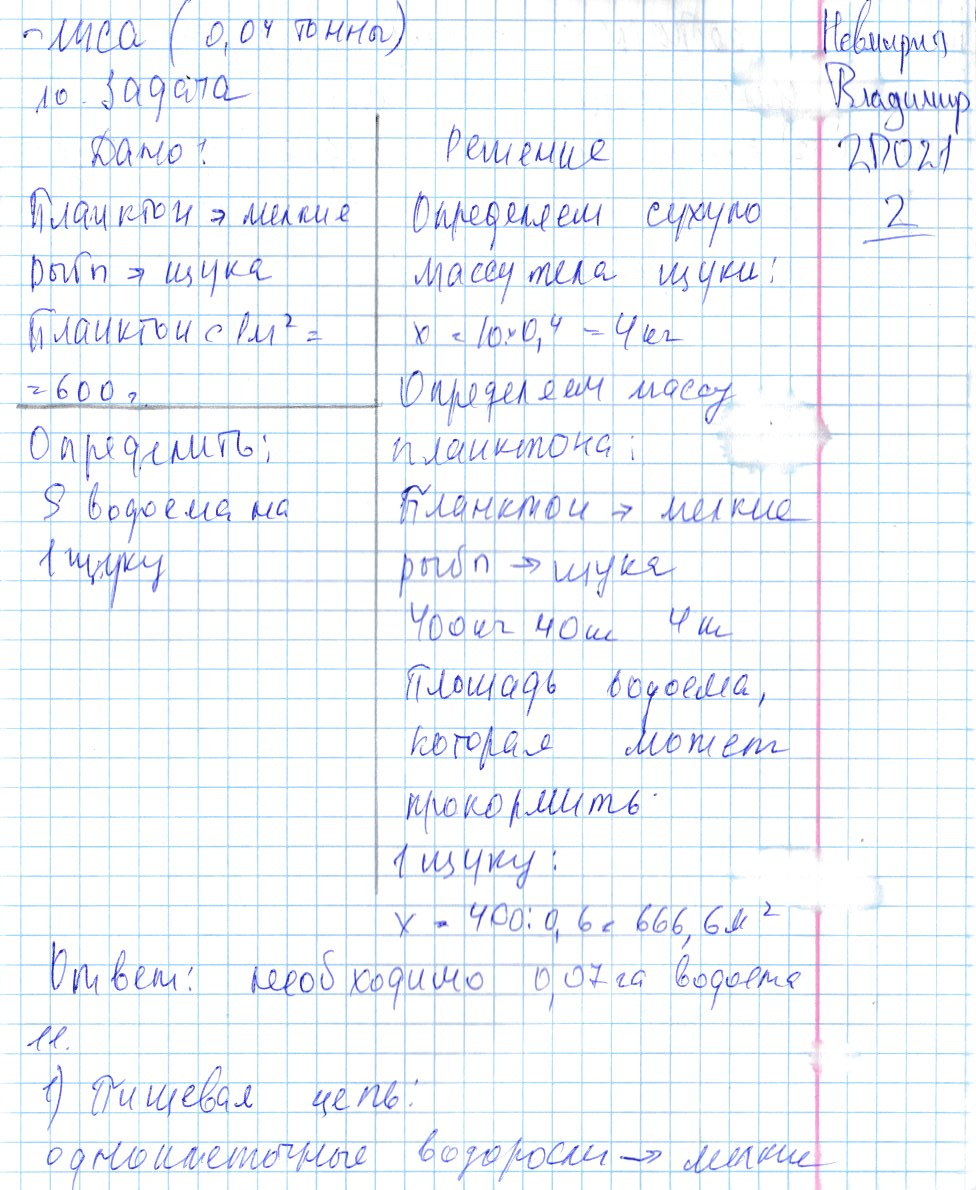 -лиса (0,04 тонны)
Невмирич
Владимир
2П021
2
10. Задача
Дано:
Планктон → мелкие
рыбы → щука
Планктон с 1м² =
= 600г
Определить:
S водоема на
1 щуку
Решение
Определяем сухую
массу тела щуки:
x = 10·0,4 = 4кг
Определяем массу
планктона:
Планктон → мелкие
рыбы → щука
400кг 40кг 4кг
Площадь водоема,
которая может
прокормить
1 щуку:
x = 400:0,6 = 666,6м²
Ответ: необходимо 0,07га водоема
11.
1) Пищевая цепь:
одноклеточные водоросли → мелкие